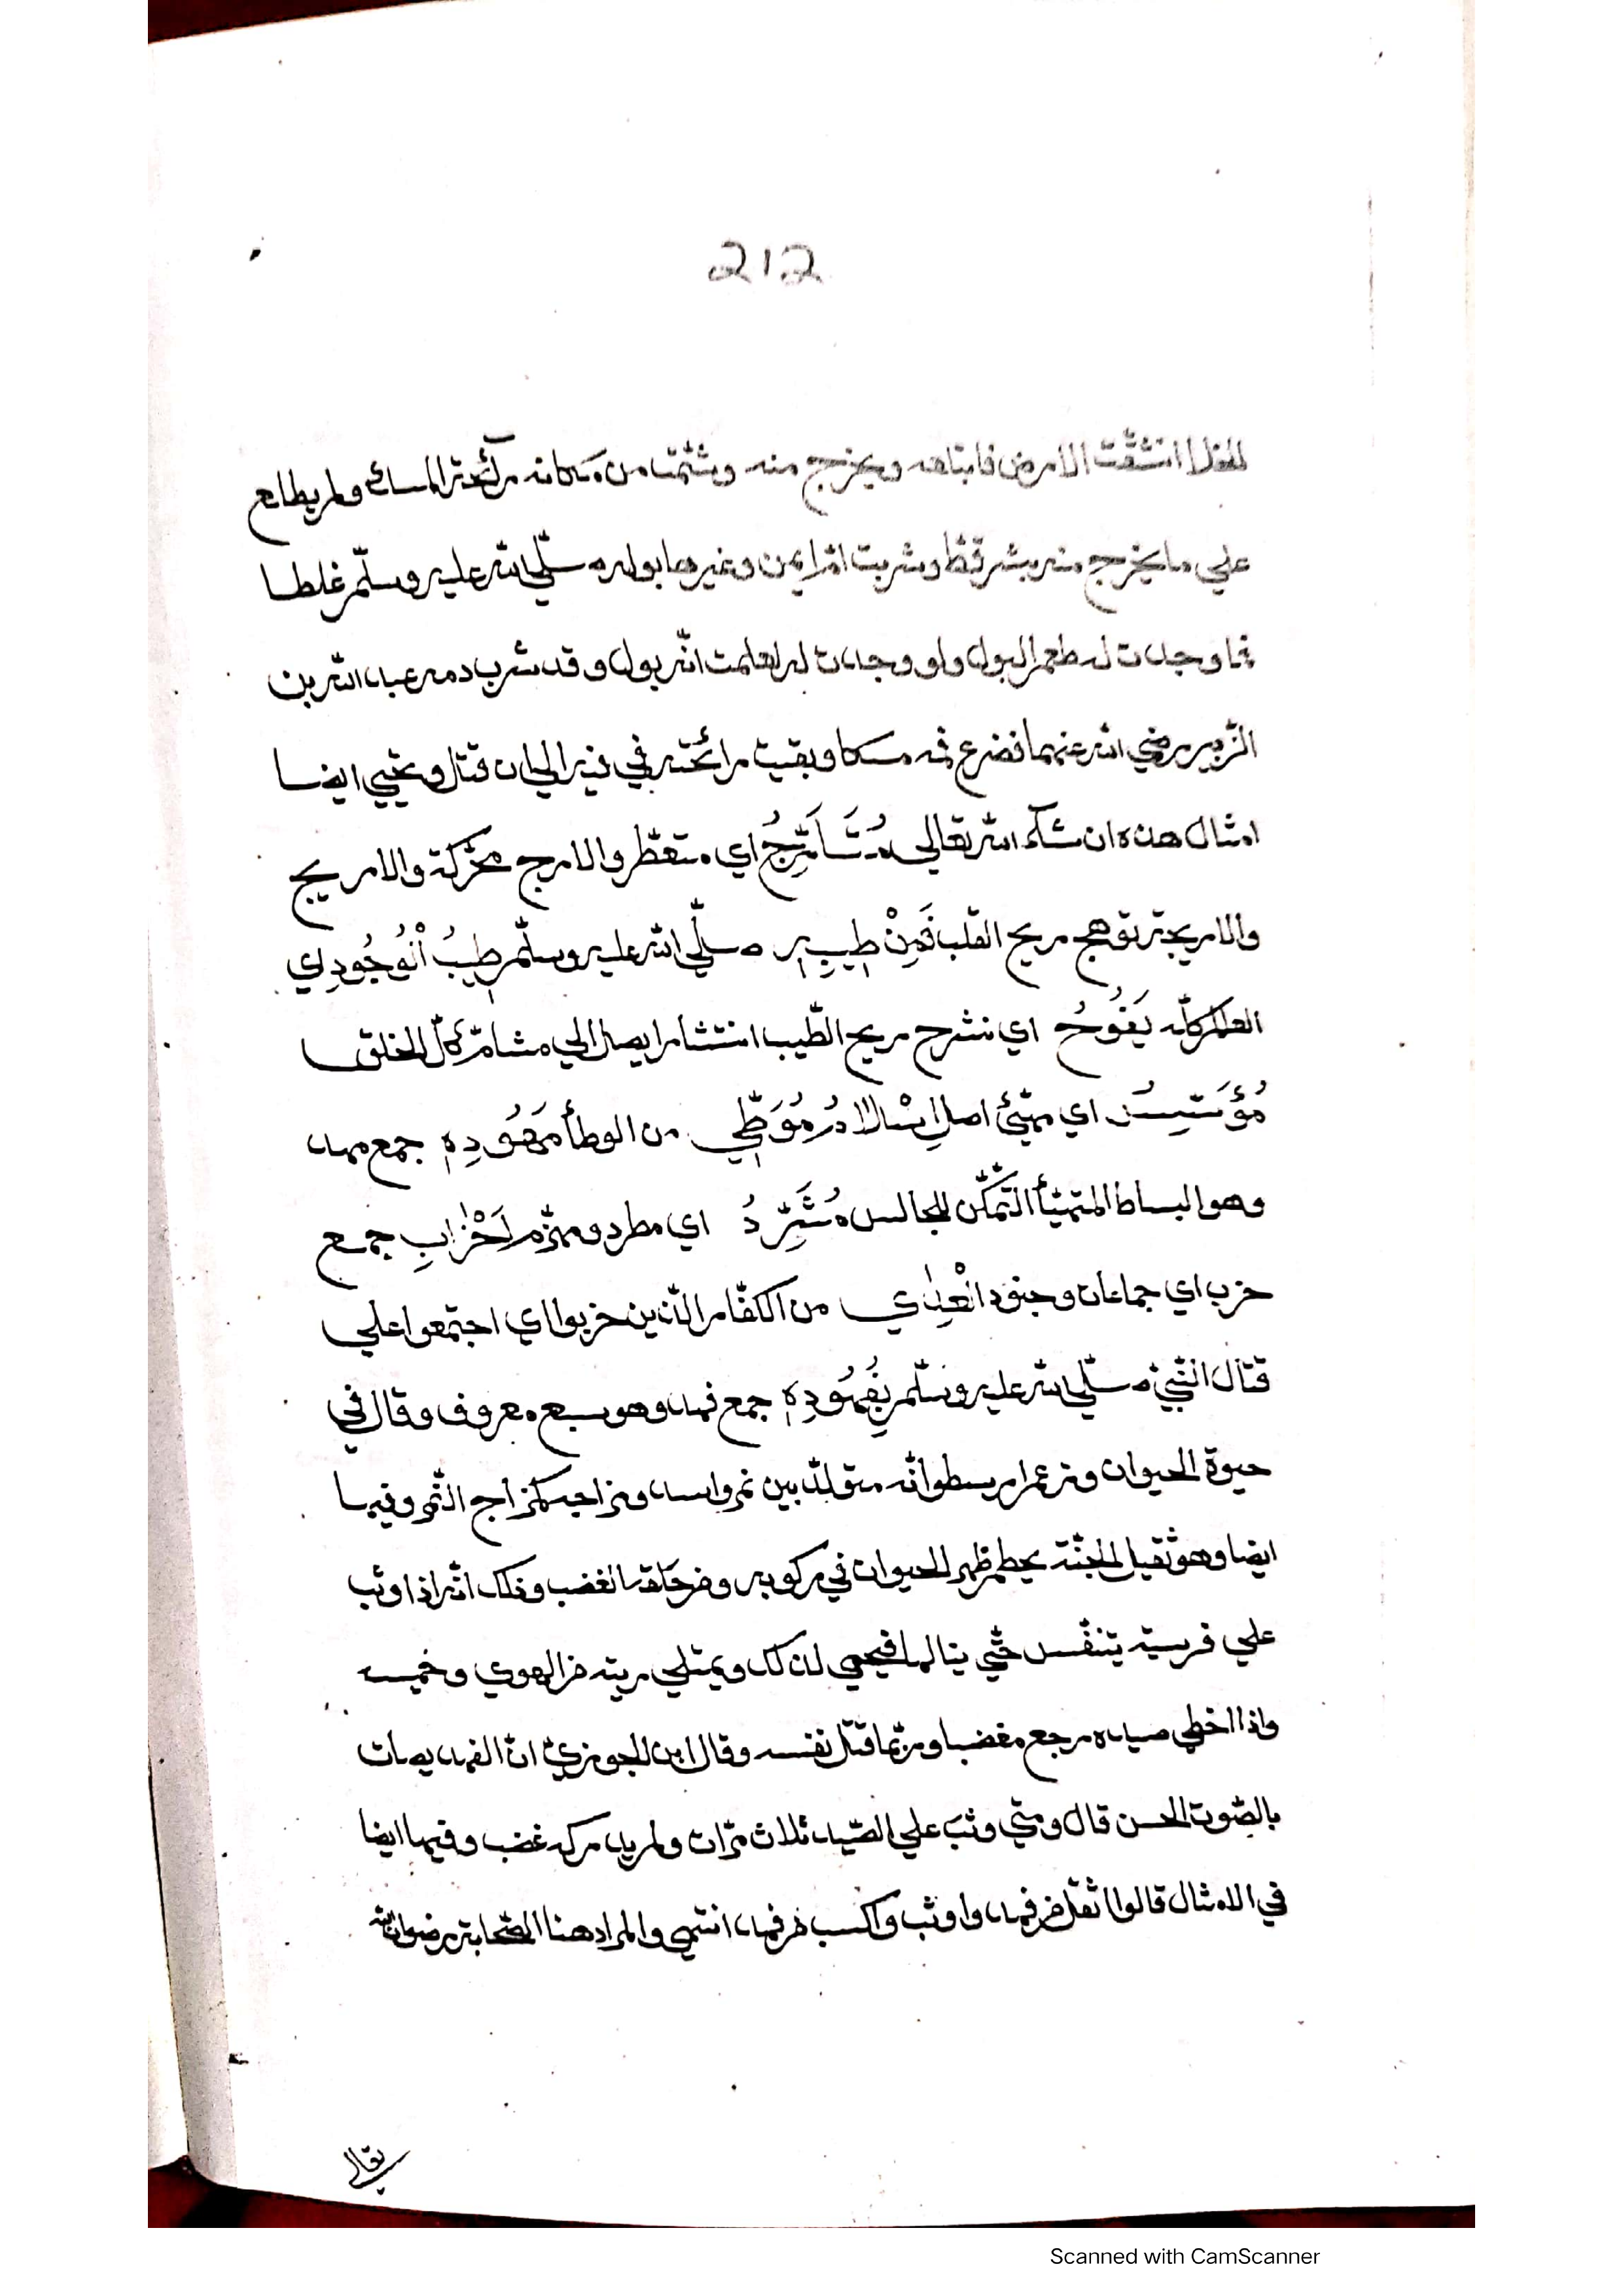 212
انشقّت الارض فابتلعه ويخرج منه وشمّت من مكانه رائحة المسك ولم يطلع
علي ما يخرج منه بشر قطّ وشربت امّ ايمن وغيرها بوله صلّي الله عليه وسلّم غلطا
فما وجدت له طعم البول ولو وجدت له لعلمت انّه بول وقد شرب دمه عبد الله بن
الزّبير رضي الله عنهما فضوع فمه مسكا وبقيت رائحته في فيه الي ان قتل ويجيي ايضا
امثال هذه ان شاء الله تعالي مُتَأَرِّجُ اي متعطّر والارج محرّكة والاريج
والاريجة توهج ريح الطّيب فَمِنْ طِيبِهِ صلّي الله عليه وسلّم طِيبُ الْوُجُودِ اي
العالم كلّه يَفُوحُ اي ننشرح ريح الطّيب انتشارا يصل الي مشامّ كلّ الخلق
مُؤَسِّسُ اي مهيّئ اصل اِسْلَادُ مُوَطِّي من الوطأ مَهُودِهِ جمع مهد
وهو البساط المتهيّأ التّمكّن للجالس مُشَرِّدُ اي مطرد ومهزّم اَحْزَابِ جمع
حزب اي جماعات وجنود الْعِدٰي من الكفّار الّذين حزبوا اي اجتمعوا علي
قتال النّبيّ صلّي الله عليه وسلّم بِفُهُودِهِ جمع فهد وهو سبع معروف وقال في
حيوة الحيوان وزعم ارسطو انّه متولّد بين نمر واسد ومزاجه كمزاج النّمر وفيها
ايضا وهو ثقيل الجثّة يحطم ظهر الحيوان في ركوبه ومن خلقه الغضب وذلك انّه اذا وثب
علي فريسة يتنفّس حتّي ينالها فيحمي لذلك ويمتلي ريته من الهوي وخميسه
واذا اخطي صيده رجع مغضبا وربّما قتل نفسه وقال ابن الجوزيّ انّ الفهد يصات
بالصّوت الحسن قال ومتي وثب علي الصّيد ثلاث مرّات ولم يدركه غضب وفيها ايضا
في الامثال قالوا اثقل من فهد واوثب واكسب من فهد انتهي والمراد هنا الصّحابة رضوان الله
تعالي
Scanned with CamScanner